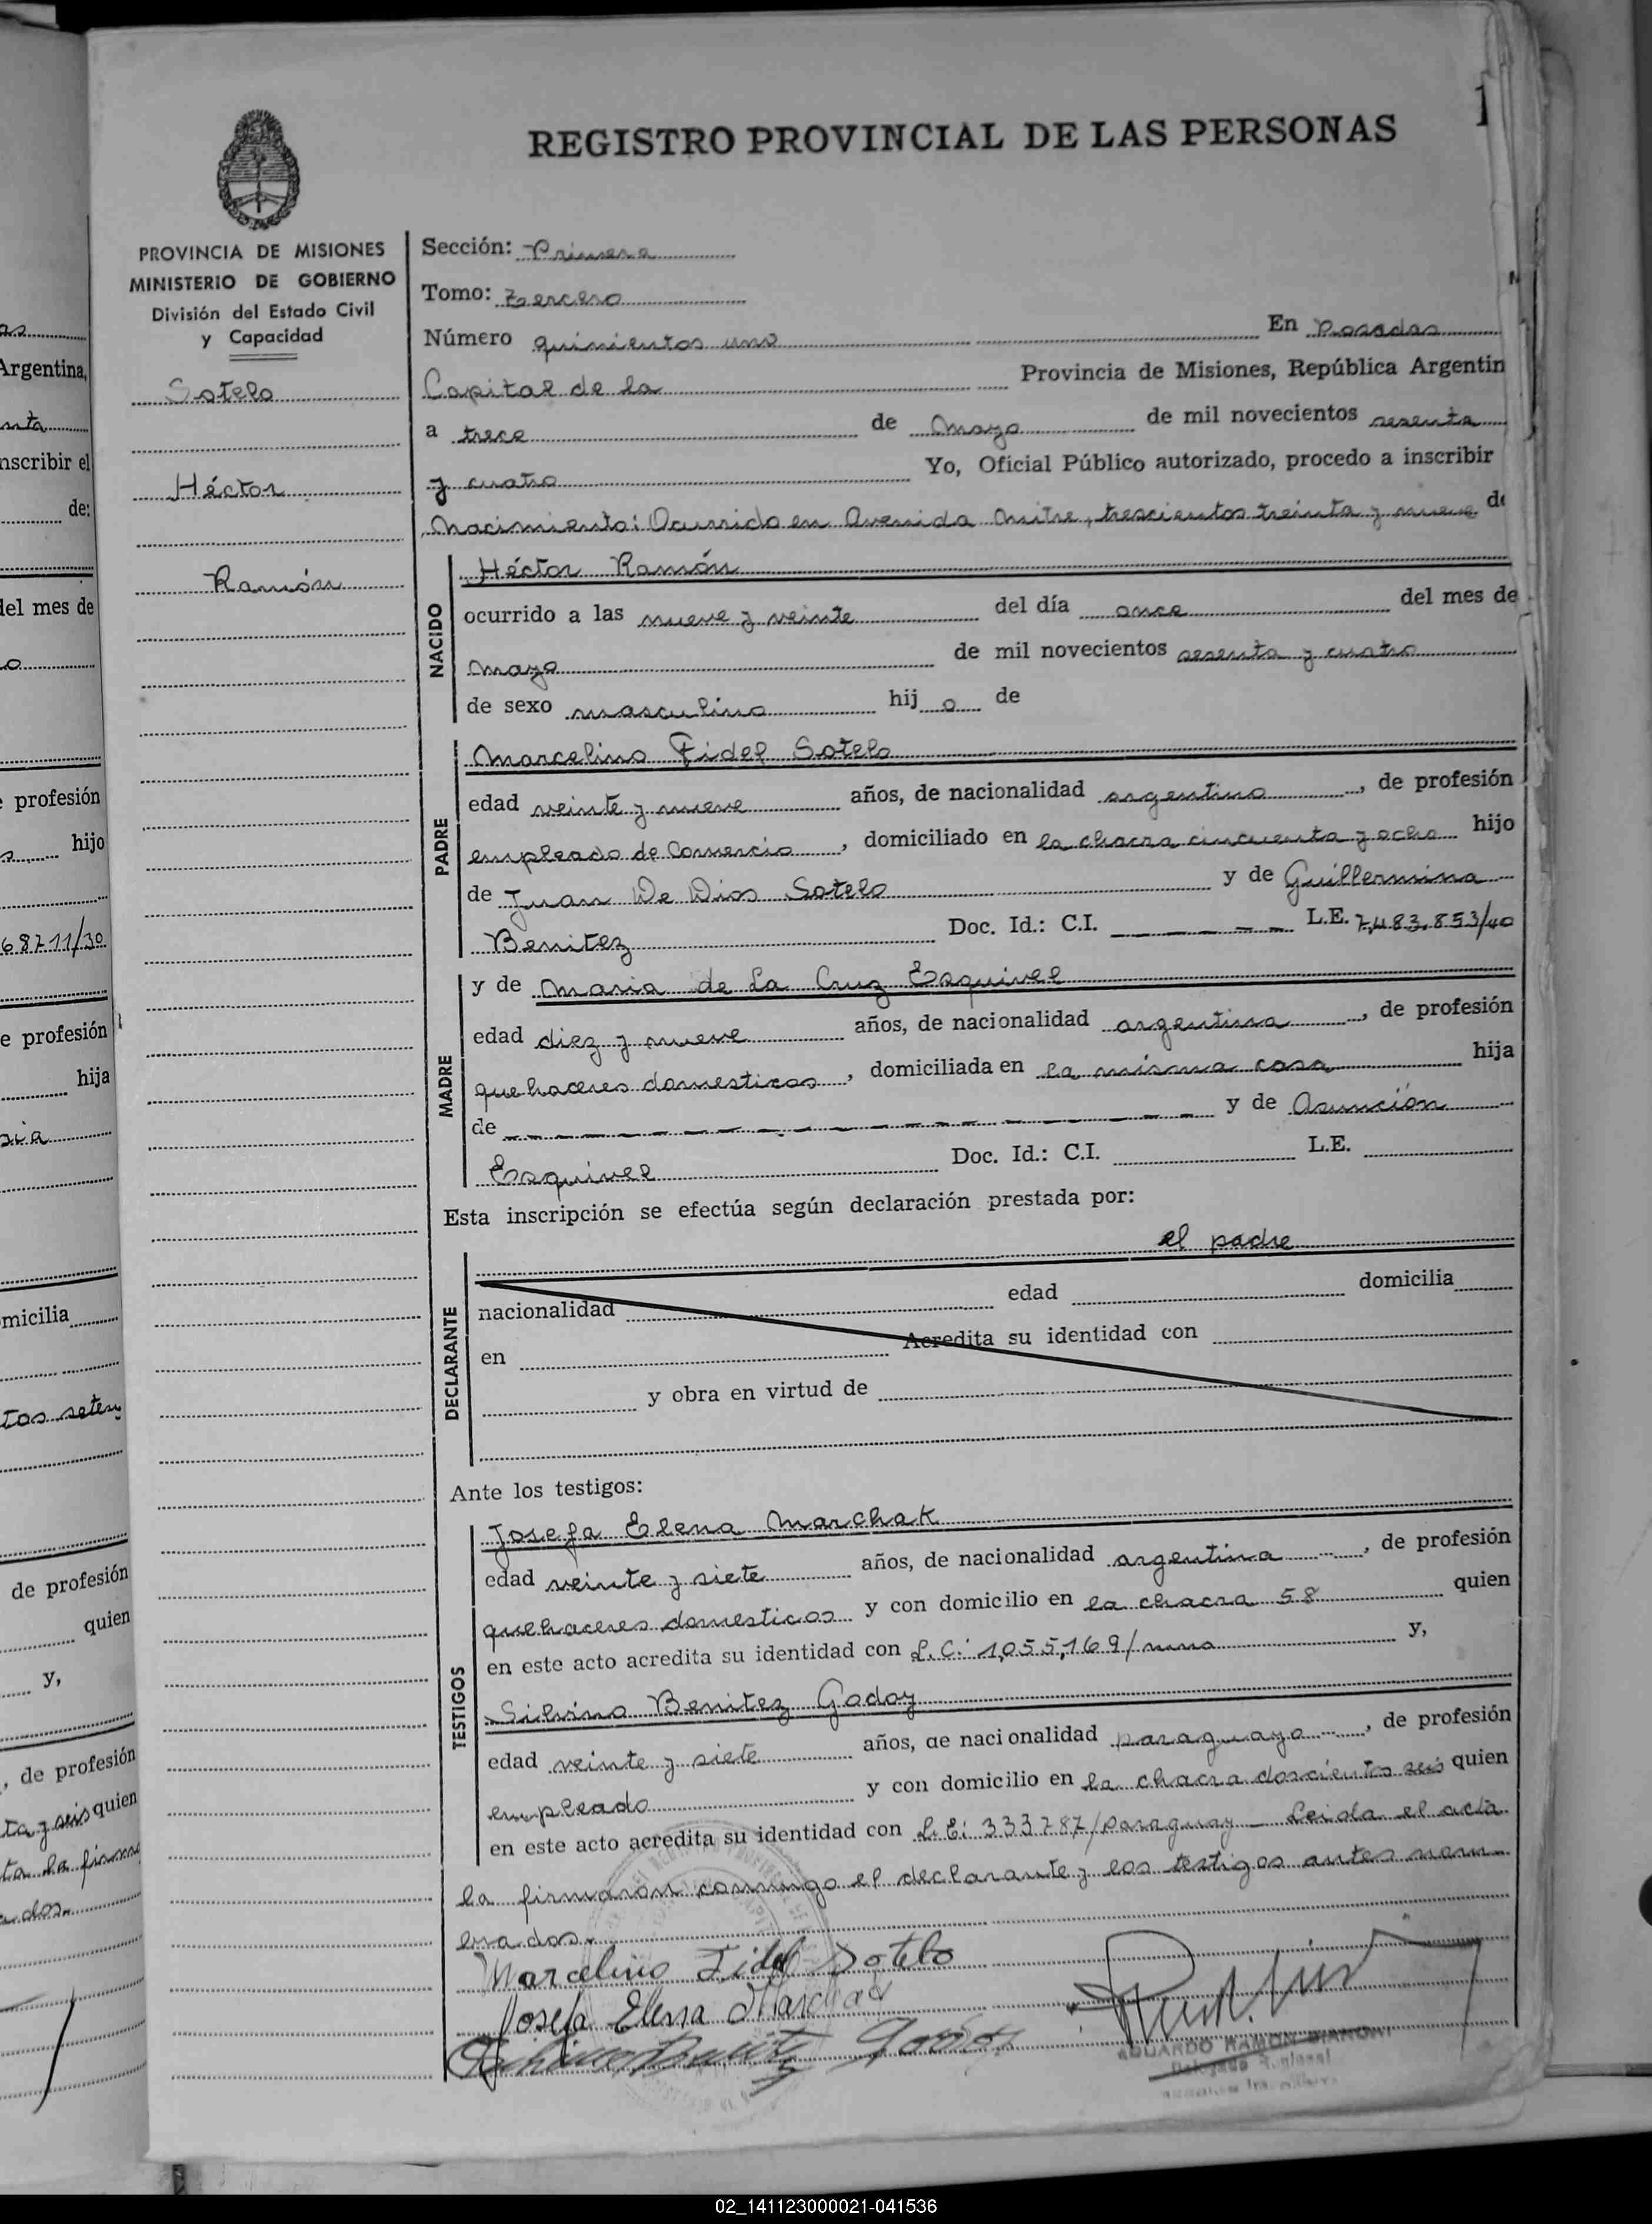 REGISTRO PROVINCIAL DE LAS PERSONAS
1
PROVINCIA DE MISIONES
MINISTERIO DE GOBIERNO
División del Estado Civil
y Capacidad
Sotelo
Héctor
Ramón
Sección: Primera
Tomo: tercero
Número quinientos uno En Posadas
Capital de la Provincia de Misiones, República Argentin
a trece de Mayo de mil novecientos sesenta
y cuatro Yo, Oficial Público autorizado, procedo a inscribir
Nacimiento: Ocurrido en Avenida Mitre, trescientos treinta y nueve de
NACIDO
Héctor Ramón
ocurrido a las nueve y veinte del día once del mes de
Mayo de mil novecientos sesenta y cuatro
de sexo masculino hij o de
PADRE
Marcelino Fidel Sotelo
edad veinte y nueve años, de nacionalidad argentino, de profesión
empleado de Comercio, domiciliado en la chacra cincuenta y ocho hijo
de Juan De Dios Sotelo y de Guillermina
Benitez Doc. Id.: C.I. — — — — — L.E. 7,483.853/40
MADRE
y de Maria de La Cruz Esquivel
edad diez y nueve años, de nacionalidad argentina, de profesión
quehaceres domesticos, domiciliada en la misma casa hija
de — — — — — — — — — — y de Asunción
Esquivel Doc. Id.: C.I. L.E.
Esta inscripción se efectúa según declaración prestada por:
el padre
DECLARANTE
nacionalidad edad domicilia
en Acredita su identidad con
y obra en virtud de
Ante los testigos:
TESTIGOS
Josefa Elena Marchak
edad veinte y siete años, de nacionalidad argentina, de profesión
quehaceres domesticos y con domicilio en la chacra 58 quien
en este acto acredita su identidad con L.C: 1,055,169/ y,
Silvino Benitez Godoy
edad veinte y siete años, de nacionalidad paraguayo, de profesión
empleado y con domicilio en la chacra doscientos seis quien
en este acto acredita su identidad con L.E: 333787/Paraguay _ Leida el acta
la firmaron conmigo el declarante y los testigos antes nom-
brados.
Marcelino Fidel Sotelo
Josefa Elena Marchak
Godoy
EDUARDO RAMON BIANCHI
Delegado Regional
as
Argentina,
nscribir el
de:
del mes de
o
profesión
hijo
68711/30
e profesión
hija
sia
micilia
tos seten
de profesión
quien
y,
, de profesión
ta y seis quien
ta la firm
ados.
02_141123000021-041536